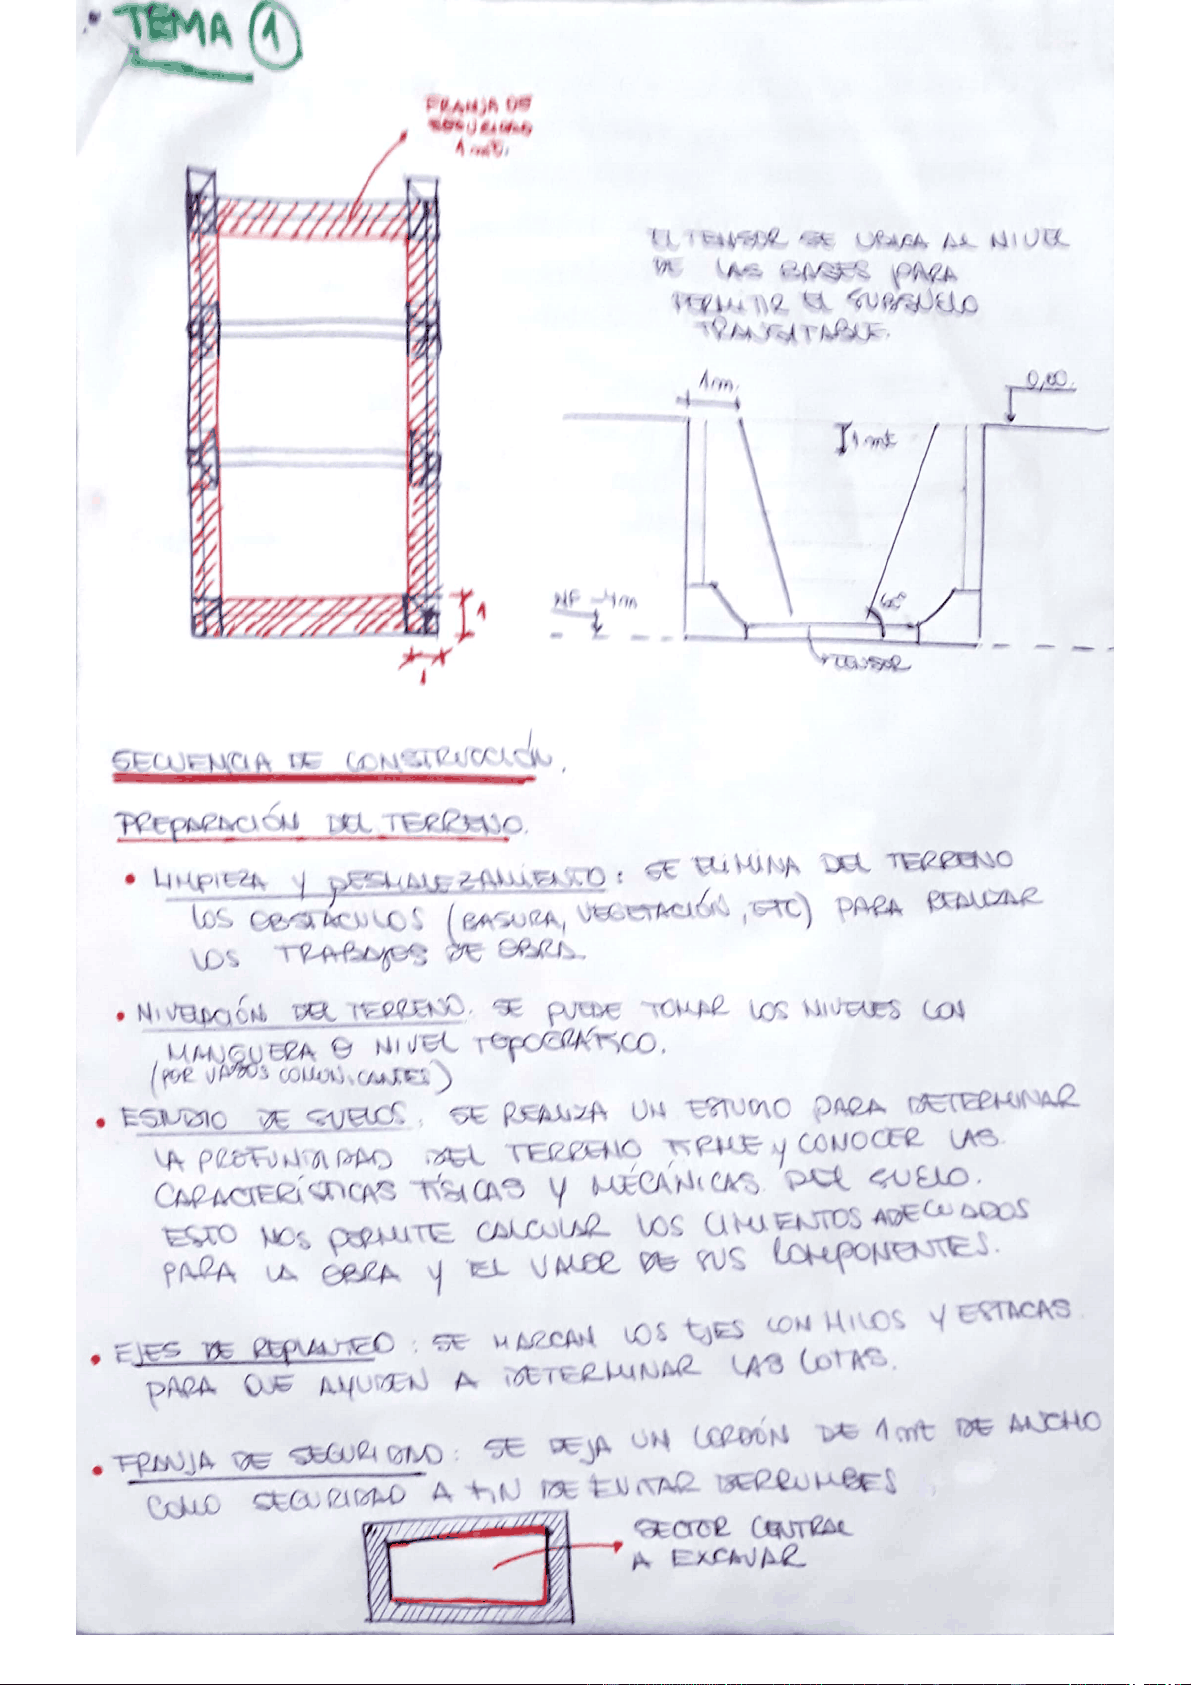 • TEMA 1
FRANJA DE
SEGURIDAD
1 mt.
EL TENSOR SE UBICA AL NIVEL
DE LAS BASES PARA
PERMITIR EL SUBSUELO
TRANSITABLE.
1m.
0,00.
1 mt
NF -4m
60°
TENSOR
1
1
SECUENCIA DE CONSTRUCCIÓN.
PREPARACIÓN DEL TERRENO.
• LIMPIEZA Y DESMALEZAMIENTO: SE ELIMINA DEL TERRENO
LOS OBSTÁCULOS (BASURA, VEGETACIÓN, ETC) PARA REALIZAR
LOS TRABAJOS DE OBRA.
• NIVELACIÓN DEL TERRENO. SE PUEDE TOMAR LOS NIVELES CON
MANGUERA O NIVEL TOPOGRÁFICO.
(POR VASOS COMUNICANTES)
• ESTUDIO DE SUELOS: SE REALIZA UN ESTUDIO PARA DETERMINAR
LA PROFUNDIDAD DEL TERRENO FIRME Y CONOCER LAS
CARACTERÍSTICAS FÍSICAS Y MECÁNICAS DEL SUELO.
ESTO NOS PERMITE CALCULAR LOS CIMIENTOS ADECUADOS
PARA LA OBRA Y EL VALOR DE SUS COMPONENTES.
• EJES DE REPLANTEO: SE MARCAN LOS EJES CON HILOS Y ESTACAS
PARA QUE AYUDEN A DETERMINAR LAS COTAS.
• FRANJA DE SEGURIDAD: SE DEJA UN CORDÓN DE 1 mt DE ANCHO
COMO SEGURIDAD A FIN DE EVITAR DERRUMBES
SECTOR CENTRAL
A EXCAVAR